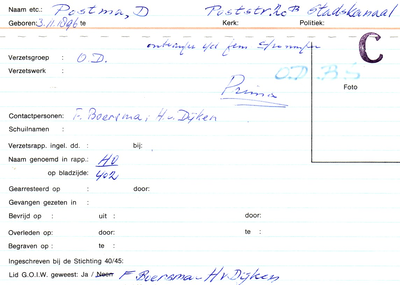 Naam etc.: Postma, D Poststr. 2c B Stadskanaal
Geboren: 3.11.1896 te Kerk: Politiek:
C
Verzetsgroep : O.D.
Verzetswerk : O D B S
Prima Foto
Contactpersonen: F. Boersma; H.v.Dijken
Schuilnaam :
Verzetsrapp. ingel. dd. : bij:
Naam genoemd in rapp.: HO
op bladzijde: 402
Gearresteerd op : door:
Gevangen gezeten in :
Bevrijd op : uit : door:
Overleden op : door: te :
Begraven op : te :
Ingeschreven bij de Stichting 40/45:
Lid G.O.I.W. geweest: Ja / Neen F Boersma H v. Dijken